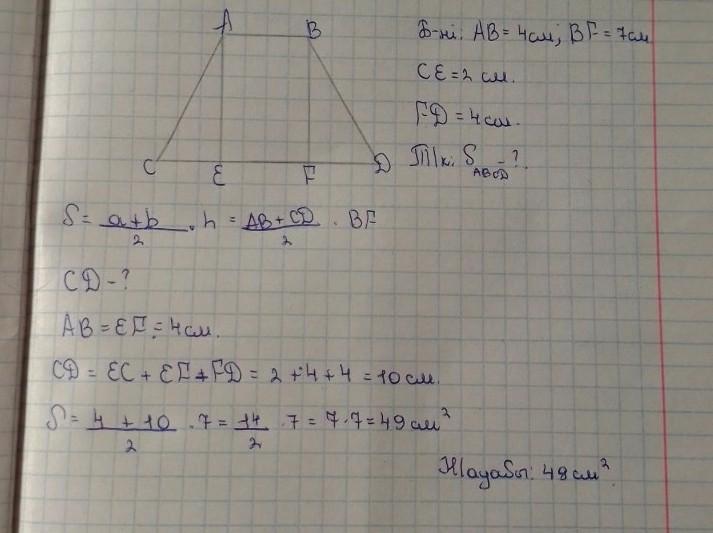 A B
Б-ні: AB = 4см; BF = 7см
CE = 2 см.
FD = 4 см.
Т/к: S ABCD - ?
C E F D
S = a+b/2 · h = AB + CD/2 · BF
CD - ?
AB = EF = 4 см.
CD = EC + EF + FD = 2 + 4 + 4 = 10 см.
S = 4 + 10/2 · 7 = 14/2 · 7 = 7 · 7 = 49 см²
Жауабы: 49 см².